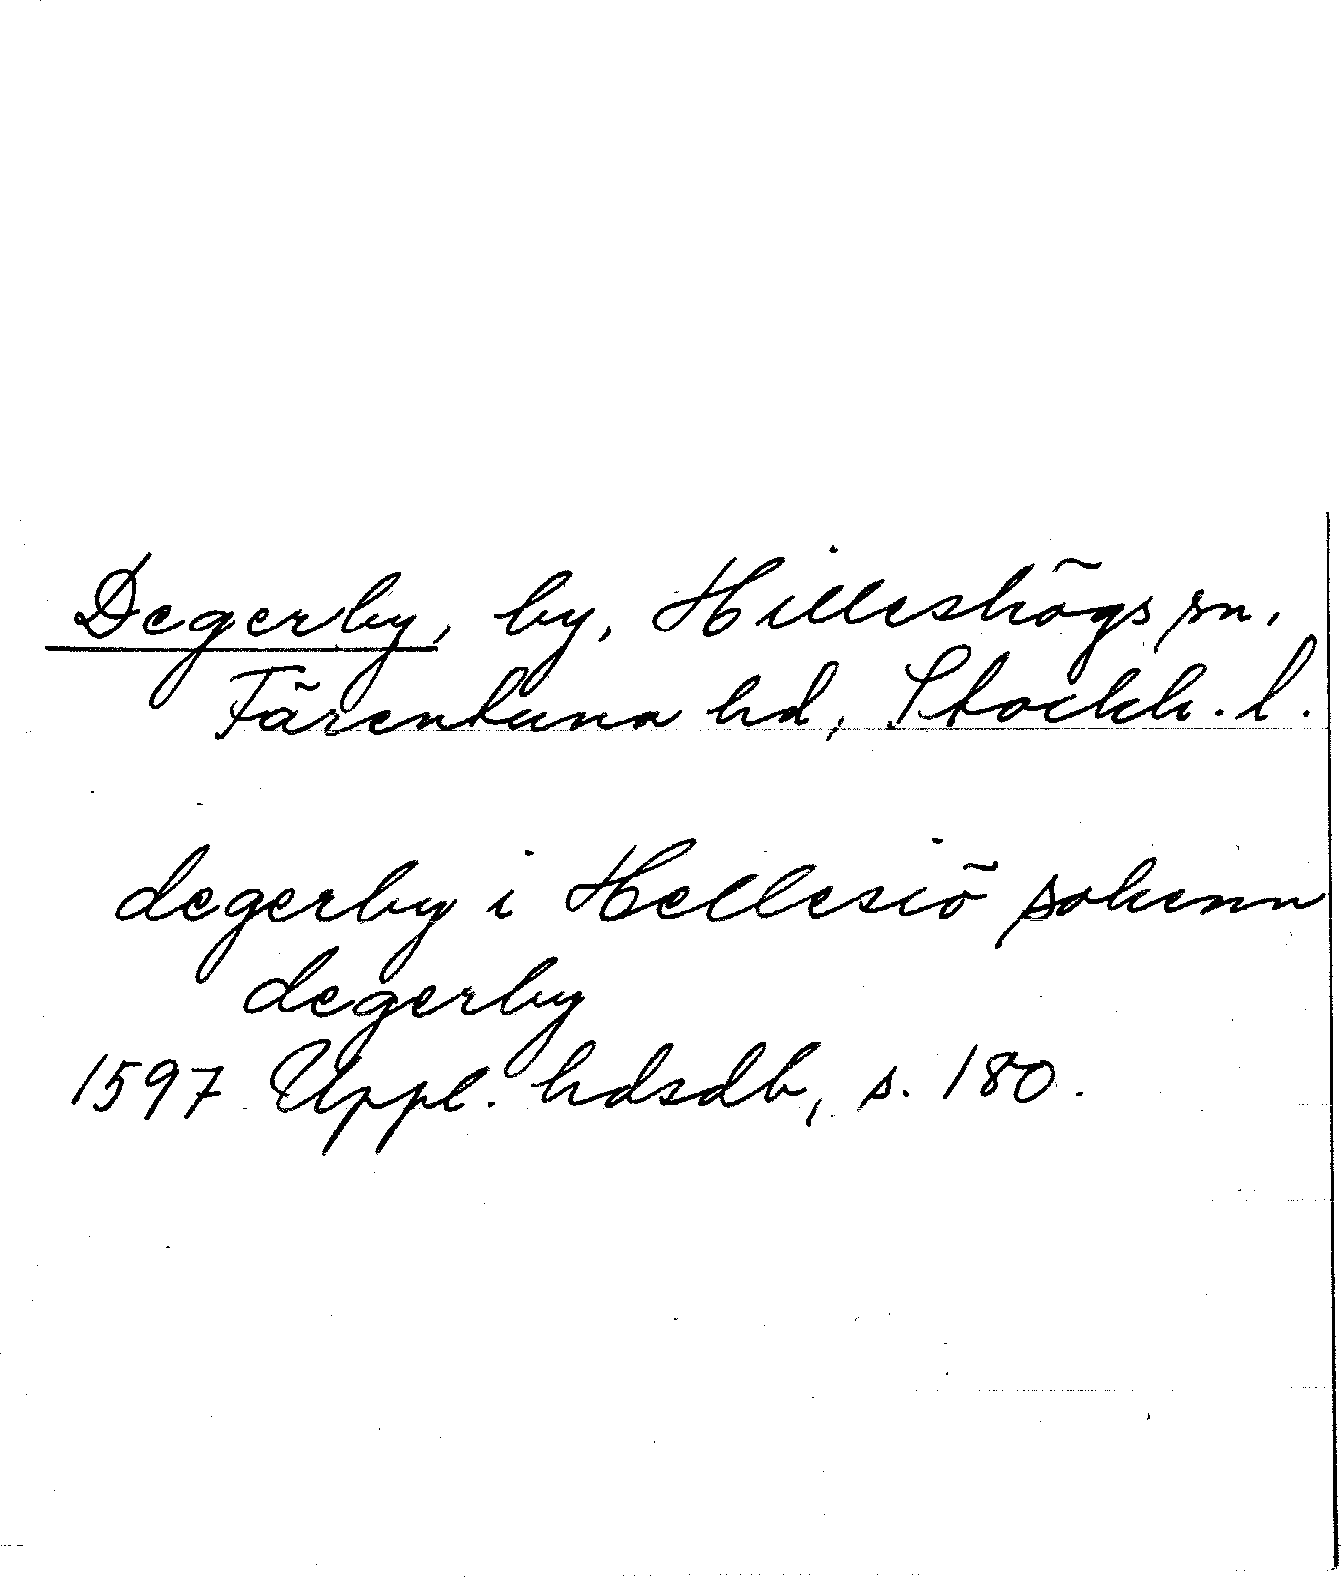 Degerby, by, Hilleshögs sn,
Färentuna hd, Stockh. l.
degerby i Hellesiö sokenn
degerby
1597 Uppl. hdsdb, s. 180.